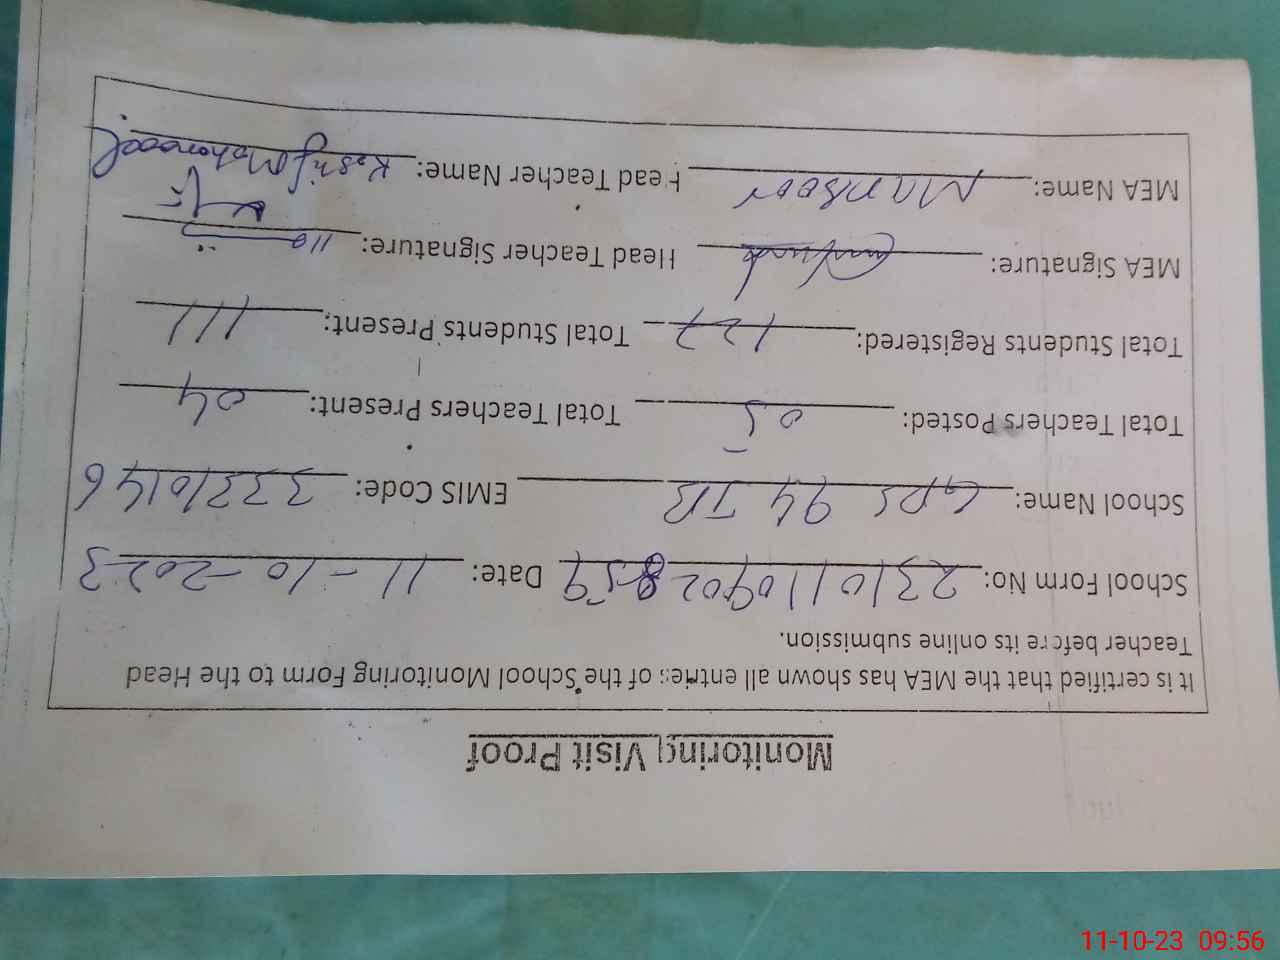 Monitoring Visit Proof
It is certified that the MEA has shown all entries of the School Monitoring Form to the Head
Teacher before its online submission.
School Form No: 2310110902859 Date: 11-10-2023
School Name: GPS 94 JB EMIS Code: 33310146
Total Teachers Posted: 05 Total Teachers Present: 04
Total Students Registered: 127 Total Students Present: 111
MEA Signature: Head Teacher Signature:
MEA Name: Mansoor Head Teacher Name: Kashif Mahmood
11-10-23 09:56